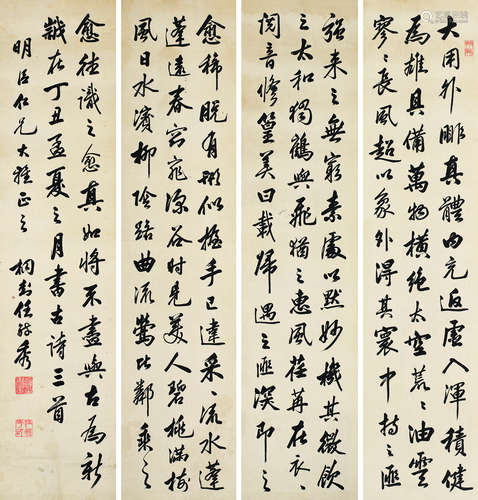 大用外腓真體內充返虛入渾積健
為雄具備萬物橫絕太空荒々油雲
寥々長風超以象外得其寰中持之匪
强来之無窮素處以默妙機其微飲
之太和獨鶴與飛猶之惠風荏苒在衣
閱音脩篁美曰載歸遇之匪深即之
愈稀脫有形似握手已違采々流水蓬
蓬遠春窈窕深谷時見美人碧桃滿樹
風日水濱柳陰路曲流鶯比鄰乘之
愈往識之愈真如將不盡與古為新
歲在丁丑孟夏之月書古詩三首
仁兄大雅正之